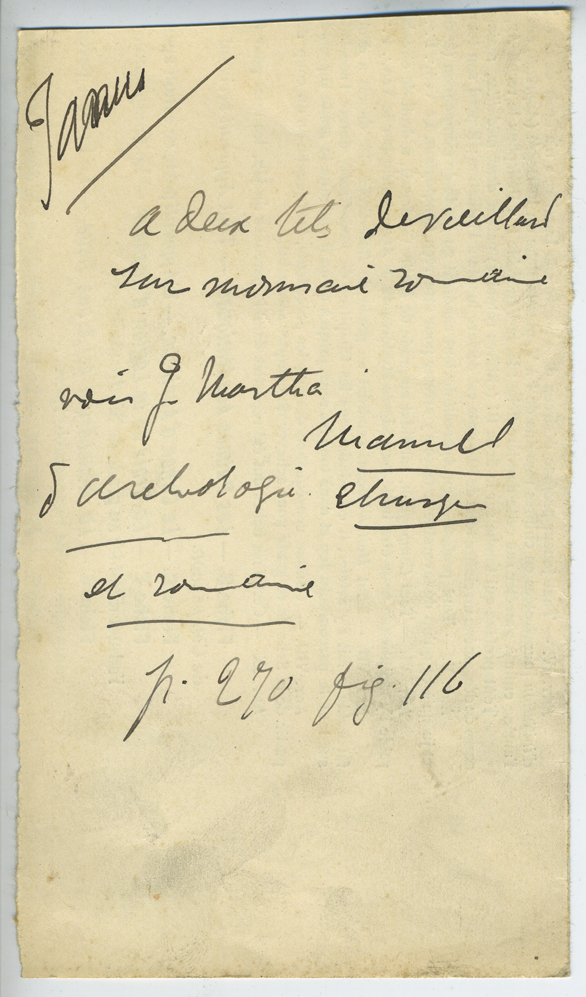 Janus
a deux têtes de vieillard
sur monnaie romaine
voir J. Martha
Manuel
d'archéologie étrusque
et romaine
p. 270 fig. 116